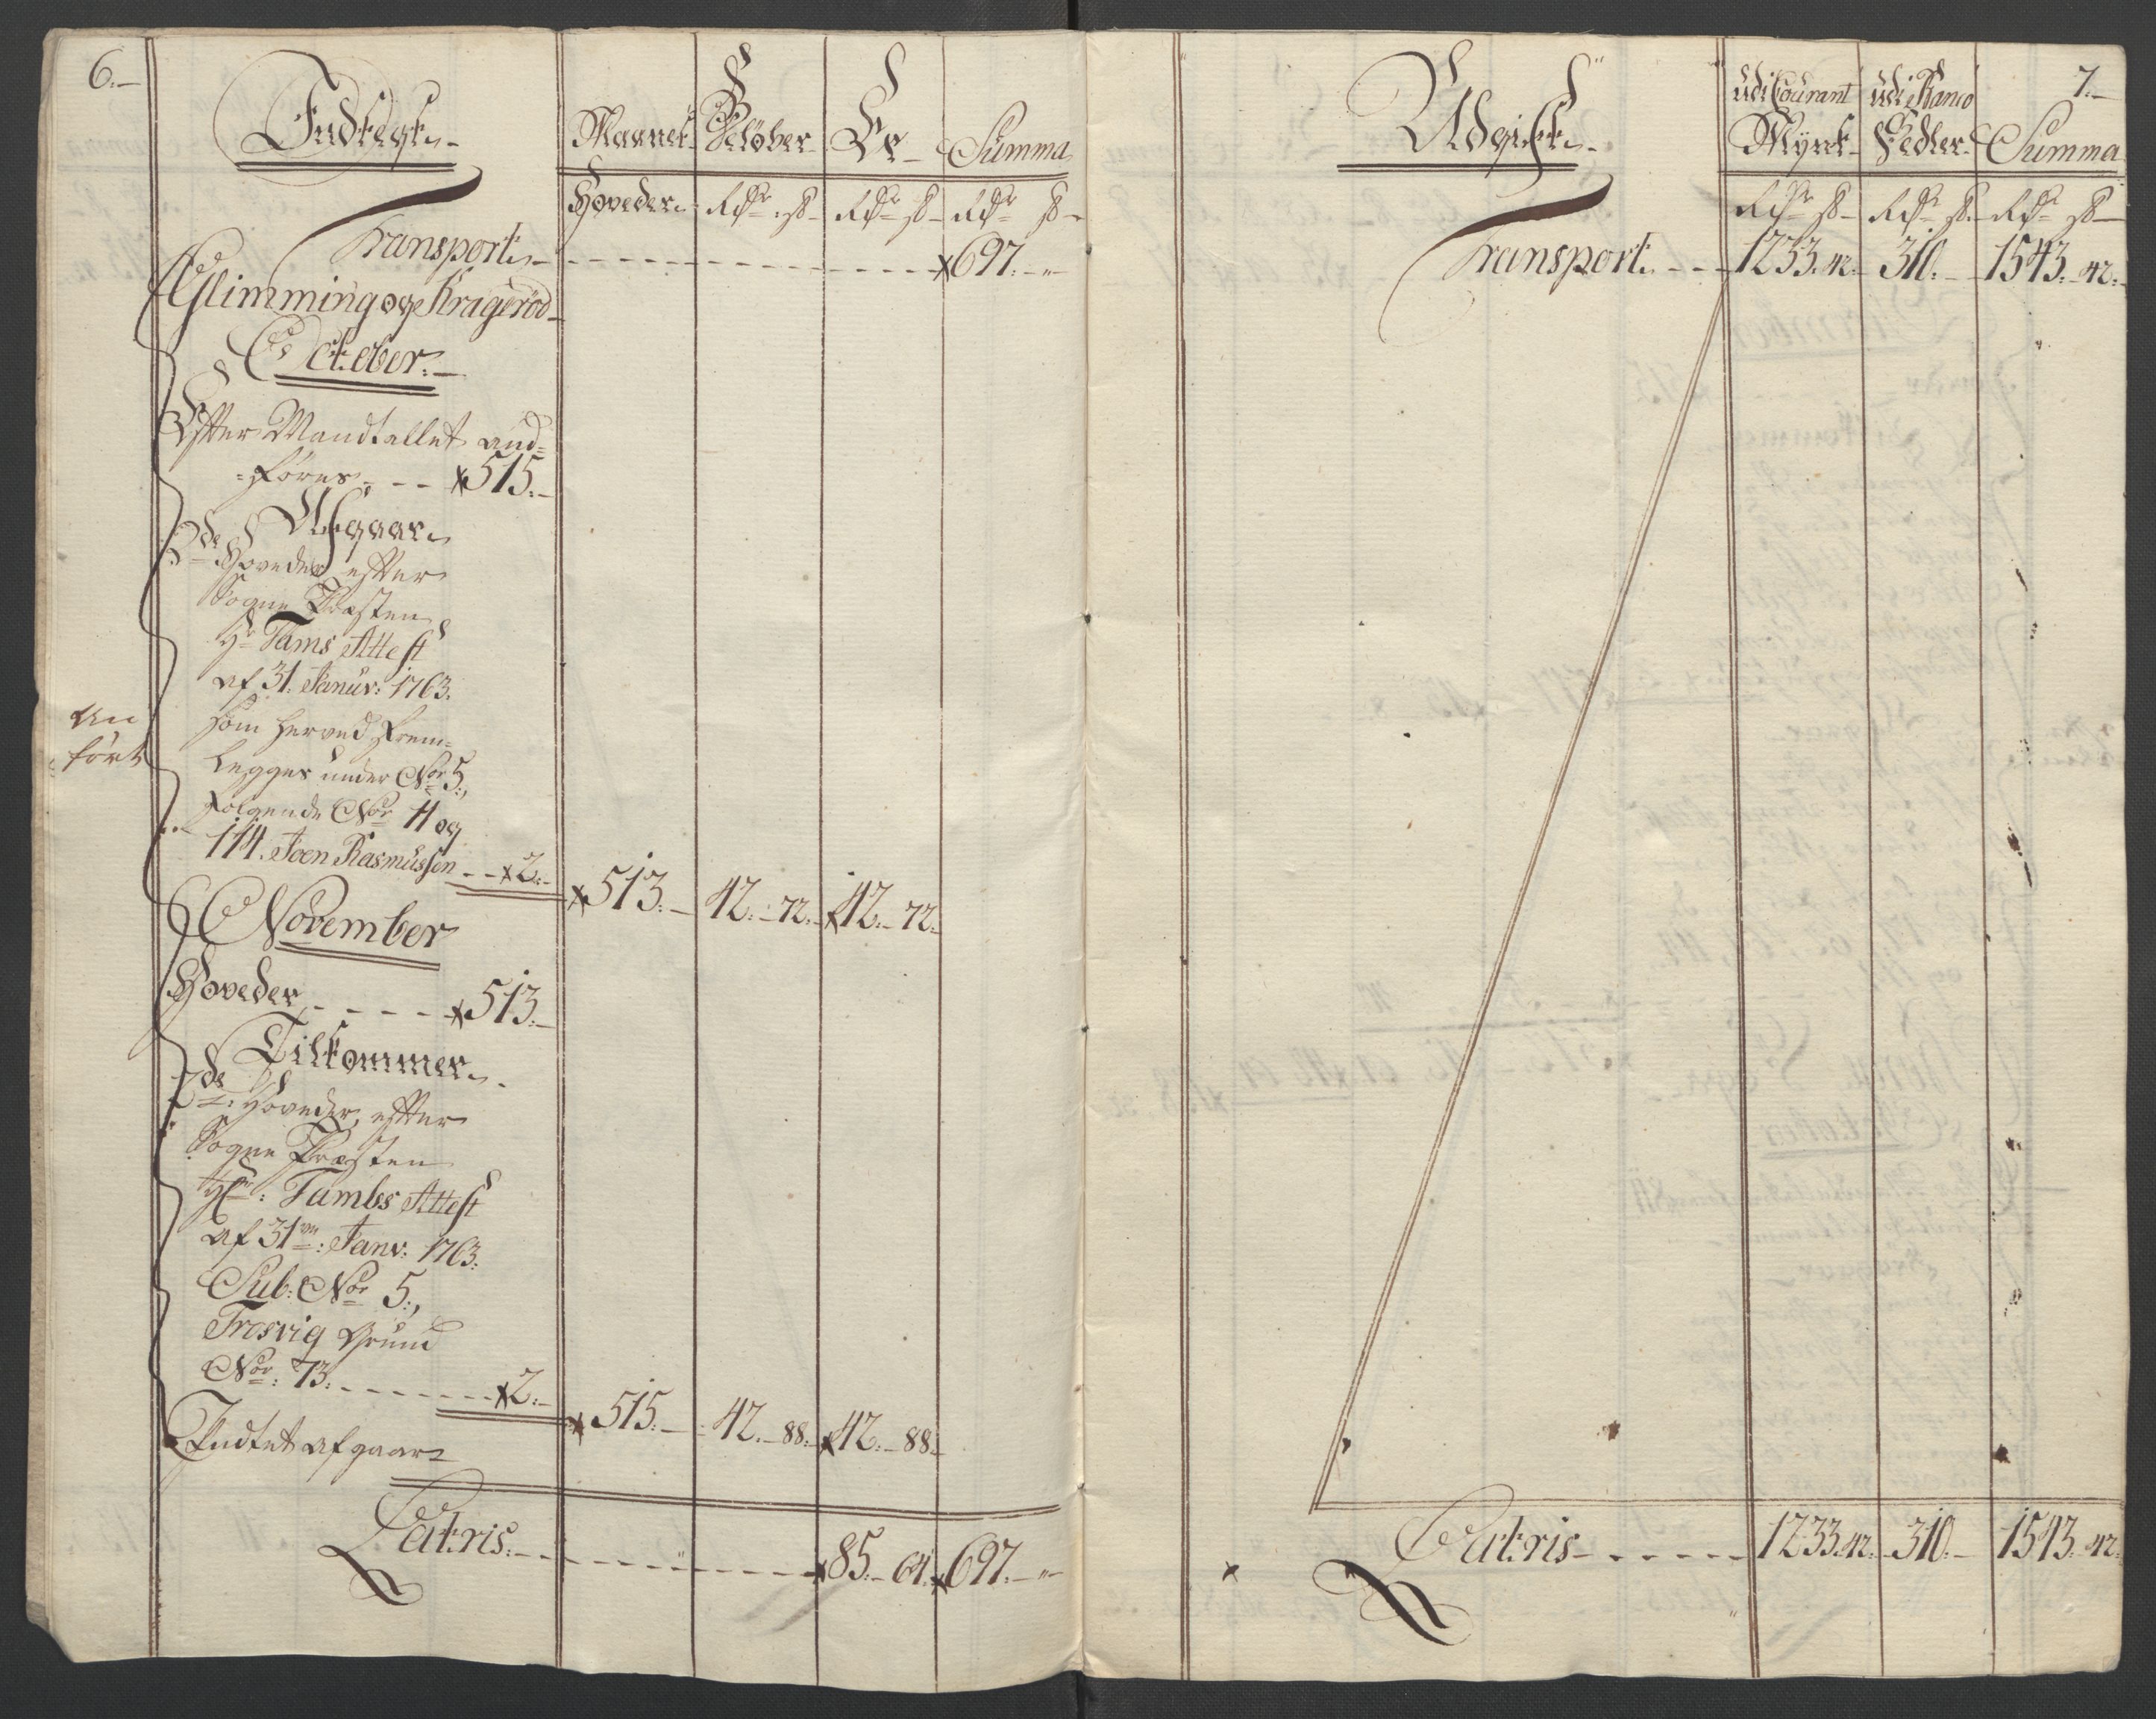 6.
Indtegt.
Maanet. Beløber. Er Summa
Hoveder. Rdr. ß Rdr. ß Rdr. ß
Transport. 697. "
Glimming og Kragerød
October.
Efter Mandtallet and=
=føres. 515.
Afgaar.
2de Hoveder efter
Sogne Præsten
Hr Tams Attest
af 31. Januv: 1763.
som herved frem=
legges under Nor 5.,
følgende Nor 4 og
114. Joen Rasmussen 2. 513. 42. 72. 42. 72.
An
ført
November
Hoveder 513.
Tilkommer.
2de Hoveder, efter
Sogne Præsten
Hr: Tambs Attest
af 31te: Janv: 1763.
Sub. Nor 5.,
Trosvig Grund
Nor: 73. 2. 515. 42. 88. 42. 88.
Indtet afgaar
Lateris. 85. 64. 697. "
7.
Udgift.
udi Courant Mynt udi Banco Sedler Summa
Rdr ß Rdr ß Rdr ß
Transport. 1233. 42. 310. 1543. 42.
Lateris 1233. 42. 310. 1543. 42.